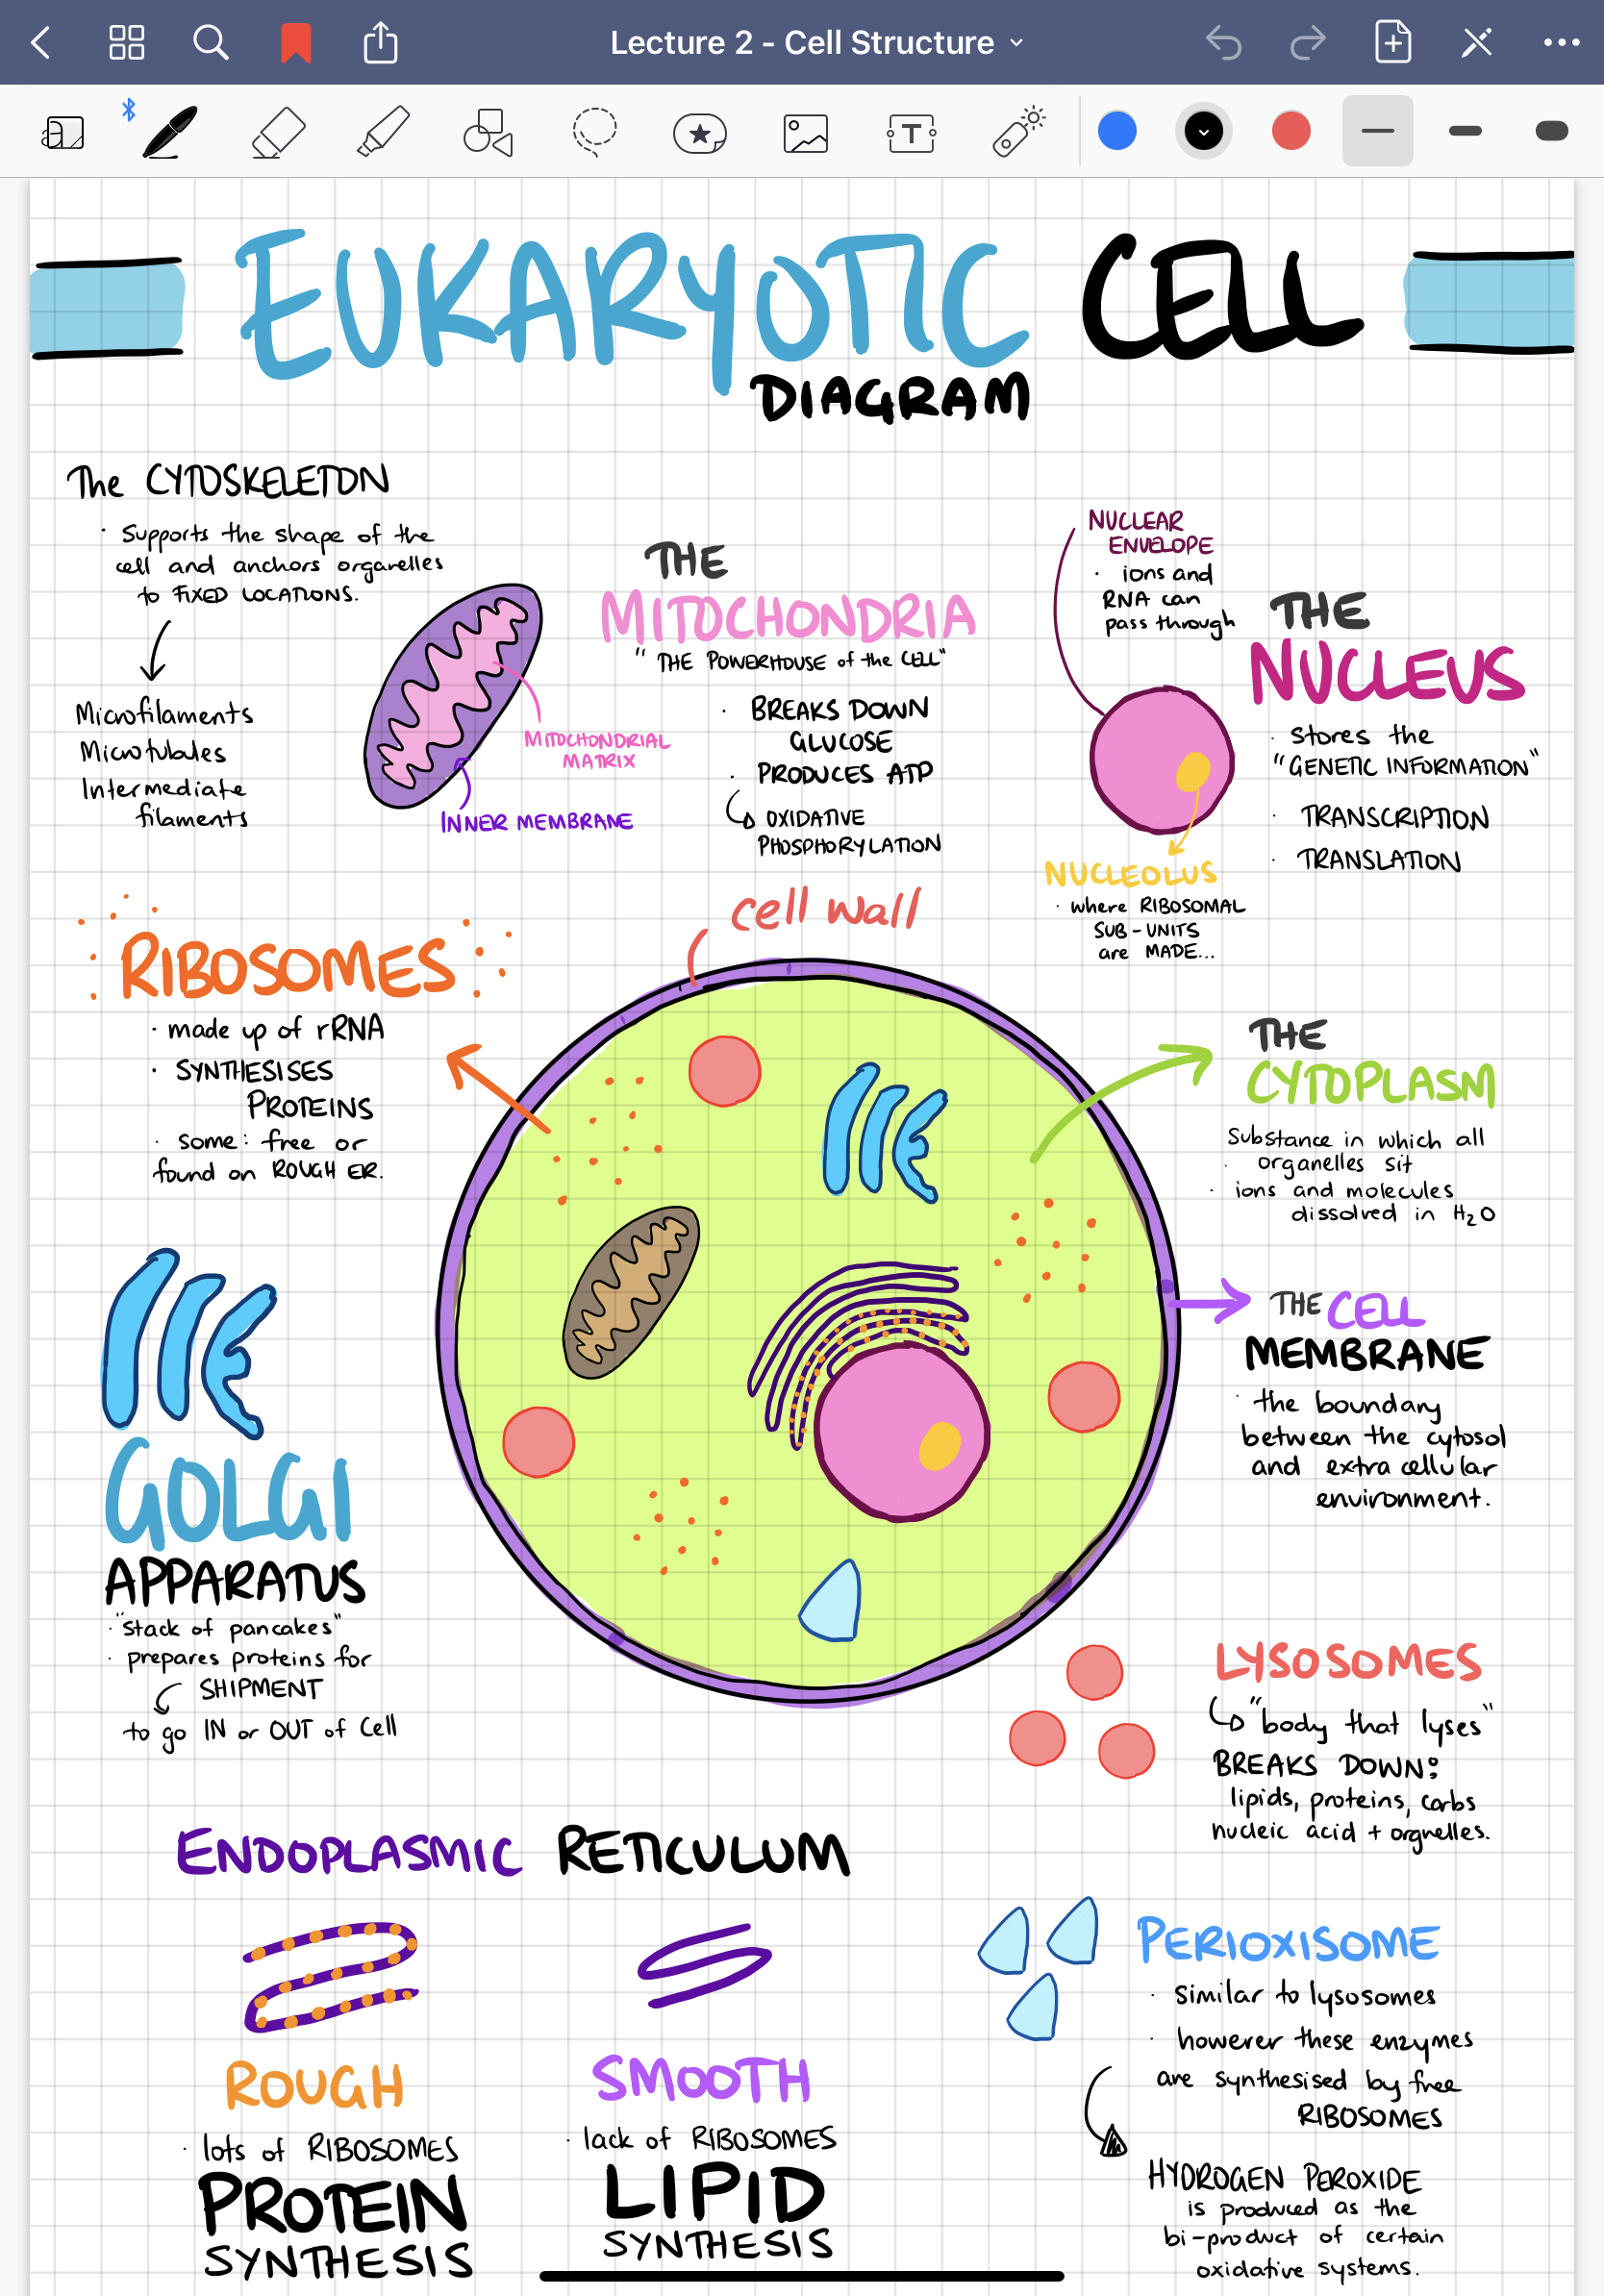 Lecture 2 - Cell Structure
EUKARYOTIC CELL
DIAGRAM
The CYTOSKELETON
· Supports the shape of the
cell and anchors organelles
to FIXED LOCATIONS.
Microfilaments
Microtubules
Intermediate
filaments
THE
MITOCHONDRIA
"THE POWERHOUSE of the CELL"
· BREAKS DOWN
GLUCOSE
· PRODUCES ATP
OXIDATIVE
PHOSPHORYLATION
MITOCHONDRIAL
MATRIX
INNER MEMBRANE
NUCLEAR
ENVELOPE
· ions and
RNA can
pass through
THE
NUCLEUS
· Stores the
"GENETIC INFORMATION"
· TRANSCRIPTION
· TRANSLATION
NUCLEOLUS
· where RIBOSOMAL
SUB-UNITS
are MADE...
cell wall
RIBOSOMES
· made up of rRNA
· SYNTHESISES
PROTEINS
· some: free or
found on ROUGH ER.
THE
CYTOPLASM
Substance in which all
· organelles sit
· ions and molecules
dissolved in H₂O
THE CELL
MEMBRANE
· the boundary
between the cytosol
and extracellular
environment.
GOLGI
APPARATUS
· "stack of pancakes"
· prepares proteins for
SHIPMENT
to go IN or OUT of Cell
LYSOSOMES
"body that lyses"
BREAKS DOWN:
lipids, proteins, carbs
nucleic acid + orgnelles.
ENDOPLASMIC RETICULUM
ROUGH
· lots of RIBOSOMES
PROTEIN
SYNTHESIS
SMOOTH
· lack of RIBOSOMES
LIPID
SYNTHESIS
PERIOXISOME
· similar to lysosomes
· however these enzymes
are synthesised by free
RIBOSOMES
HYDROGEN PEROXIDE
is produced as the
bi-product of certain
oxidative systems.